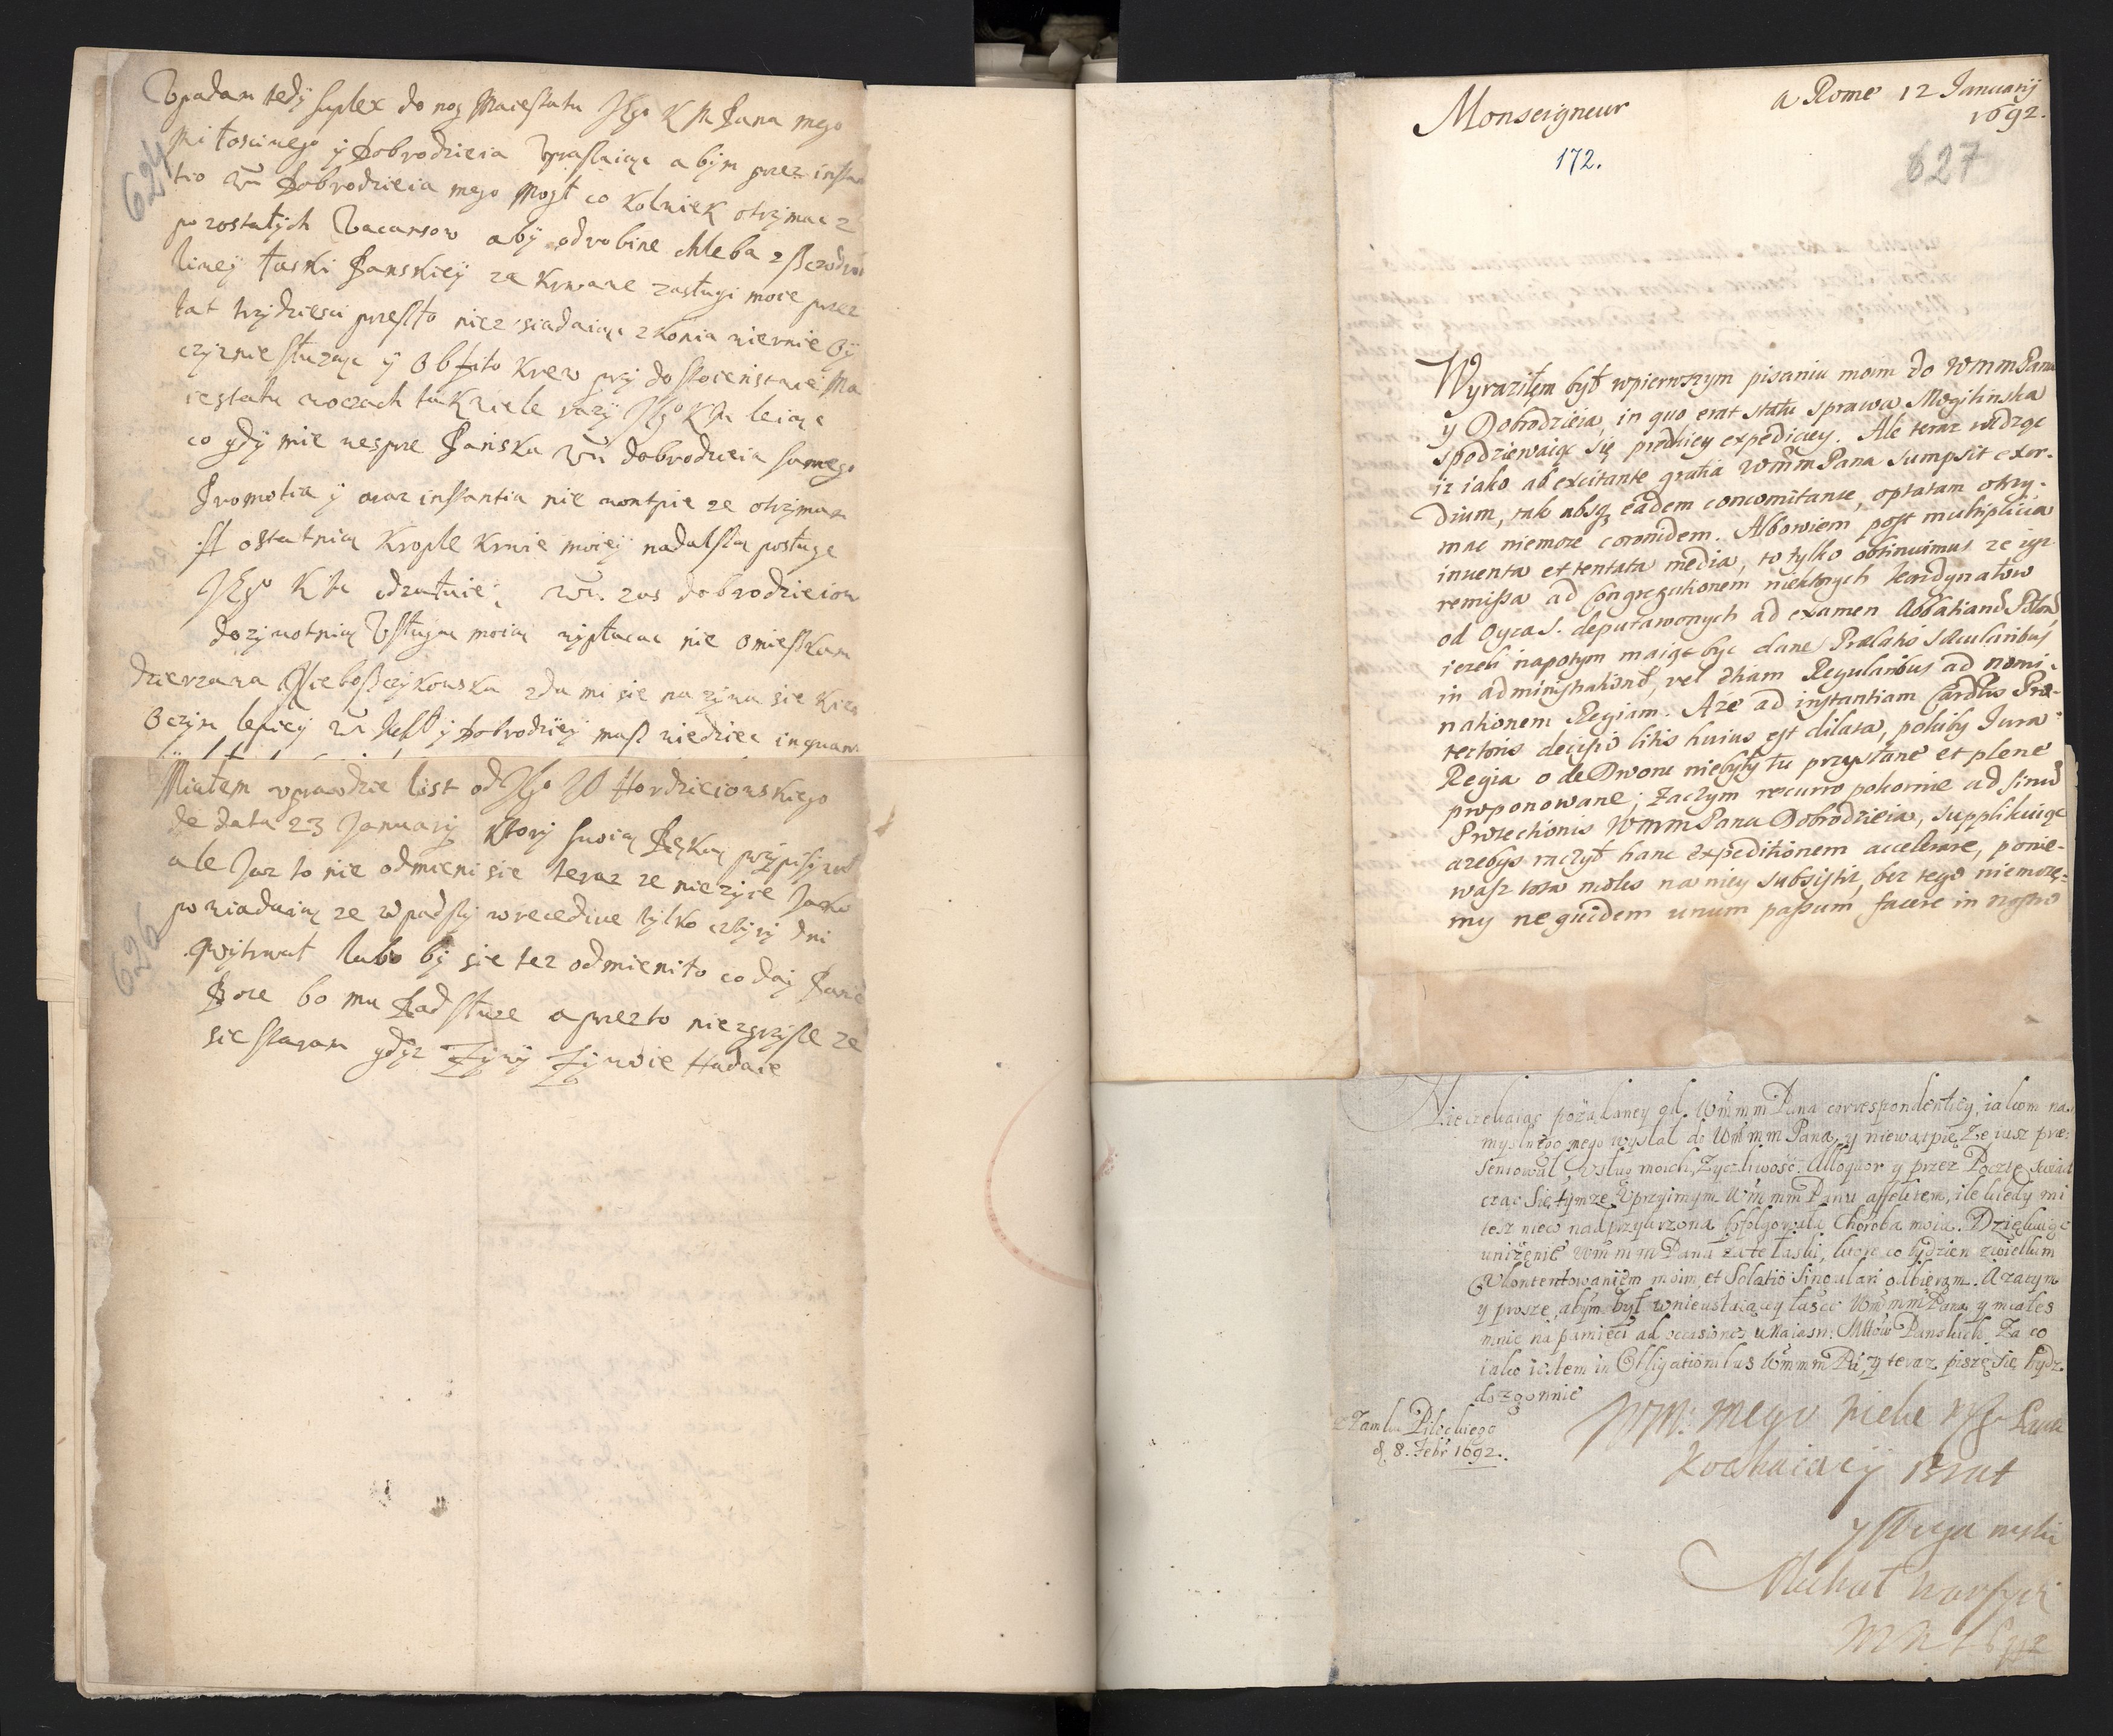 624
Upadam tedÿ suplex do nog Maiestatu JKgo K M Pana mego
Miłosciwego ÿ Dobrodzieia Upraszaiąc abÿm przez instan
tio Wm Dobrodzieia mego Mogł co kolwiek otrzÿmac z
pozostałÿch Vacansow abÿ odrobine chleba z Sczodro
liweÿ łaski Panskieÿ za krwawe zasługi moie przez
lat trzÿdziesci przeszło niezsiadaiąc z konia wiernie Oÿ
czÿznie słuząc ÿ Obfito krew przÿ dostoienstwie Ma
iestatu w oczach tak wiele razÿ JKgo KM leiąc
co gdÿ mie wesprze Pańska Wm dobrodzieia samego
Promotia ÿ oraz instantia nie wontpie ze otrzÿmam
ostatnią krople krwie moieÿ na dalszą posługe
JKgo KM Wm zas dobrodzieiow
dozÿwotnią Usługą moią wÿpłacac nie omieszkam
dzierzawa Nieboszczÿkowska zda mi sie nazÿwa sie
O czÿm lepieÿ Wm ÿ Dobrodzieÿ masz wiedziec inquam
626
Miałem wprawdzie list od JKgo Hordzieiowskiego
de data 23 Januarÿ ktorÿ swoią Ręką przÿpisÿwał
ale Juz to nie odmieni sie teraz ze nie zÿie Jako
powiadaią ze wpadszÿ w recediwe tÿlko cztÿrÿ dni
wÿtrwał lubo bÿ sie tez odmieniło co daÿ Panie
Boze bo mu Rad słuze a przez to nie zgrzysze ze
sie staram gdÿz Zÿwÿ Zÿwie Hadaie
Monseigneur
a Rome 12 Januarij
1692.
172.
627
Wyraziłem był w pierwszym pisaniu moim do WMMPana
y Dobrodzieia, in quo erat statu sprawa Mogilinska
spodziewaiąc się prędkiey expediciey. Ale teraz widząc
iz iako ab excitante gratia WMMPana sumpsit exor-
dium, tak absq eadem concomitante, optatam otrzy-
mac niemoze coronidem. Albowiem post multiplicia
inventa et tentata media, to tylko obtinuimus ze iest
remissa ad Congregationem niektorych kardynałow
od Oyca S. deputawonych ad examen Abbatiand Polon
iezeli napotym maią byc dane Prælatis sæcularibus
in administrationd, vel etiam Regularibus ad nomi-
nationem Regiam. Aze ad instantiam Cardlis Pro-
tectoris decisio litis huius est dilata, pokiby Jura
Regia o de Dworu niebyły tu przysłane et plene
proponowane; Zaczym recurro pokornie ad sinum
Protectionis WMMPana Dobrodzieia, supplikuiąc
azebys raczył hanc expeditionem accelerare, ponie-
wasz tota moles na niey subsistit, bez tego niemoze-
my ne quidem unum passum facere in nostro
Nieczekaiąc pożądaney od WmmmPana correspondentiey, iakom na-
myslnego mego wysłał do WmmmPana, y niewątpię, Ze iusz præ-
sentował, usług moich, Zyczliwość. Alloquor y przez Poczte swiad
cząc się tymze Uprzyimym WmmmPanu affektem, ile kiedy mi
tesz nieco nadprzykrzona sfolgowała Choroba moia. Dziękuię
uniżenie WmmmPana za te łaski, ktore co tydzien z wielkim
Ukontentowaniem moim, et Solatio Singulari odbieram. A zatym
y prosze, abym był w nieustaiącey łasce WmmmPana y miałes
mnie na pamięci ad occasiones u Naiasn: Mttow Panskich. Za co
iako iestem in Obligationibus WmmmPa, y teraz piszę się bydz
dozgonnie
z Zamku Pileckiego
d. 8. Febr 1692.
WM: mego Pana
Kochaiącÿ Brat
y sługa
Michał Warszycki